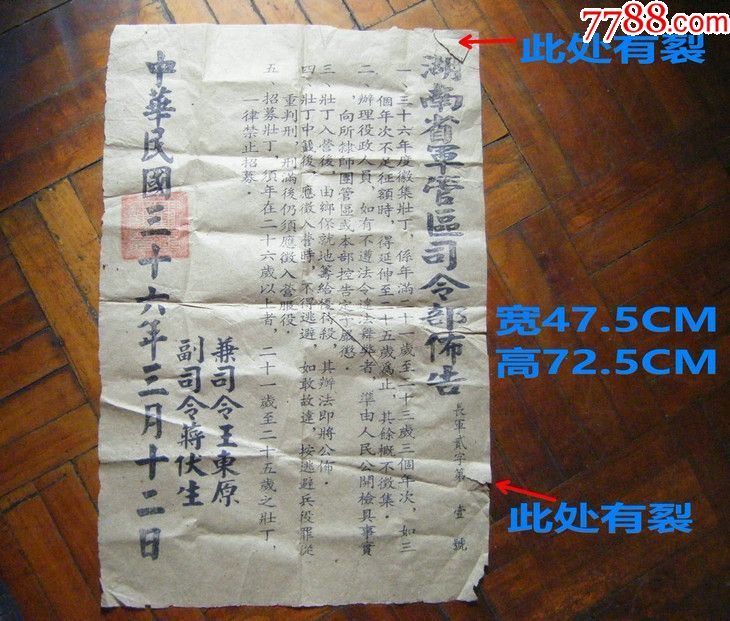 7788.com
此处有裂
湖南省軍管區司令部佈告
長軍貳字第壹號
一、三十六年度徵集壯丁，係年滿二十一歲至二十三歲三個年次，如三
個年次不足徵額時，得延伸至二十五歲爲止，其餘概不徵集．
二、辦理役政人員，如有不遵法令違法舞弊者，準由人民公開檢具事實
向所隸師團管區或本部控告定予嚴懲．
三、壯丁入營後，由鄉保就地籌給優待穀，其辦法即將公佈．
四、壯丁中籤後，應徵入營時，不得逃避，如敢故違，按逃避兵役罪從
重判刑，刑滿後仍須應徵入營服役．
五、招募壯丁，須年在二十六歲以上者，二十一歲至二十五歲之壯丁，
一律禁止招募．
兼司令王東原
副司令蔣伏生
中華民國三十六年三月十二日
宽47.5CM
高72.5CM
此处有裂